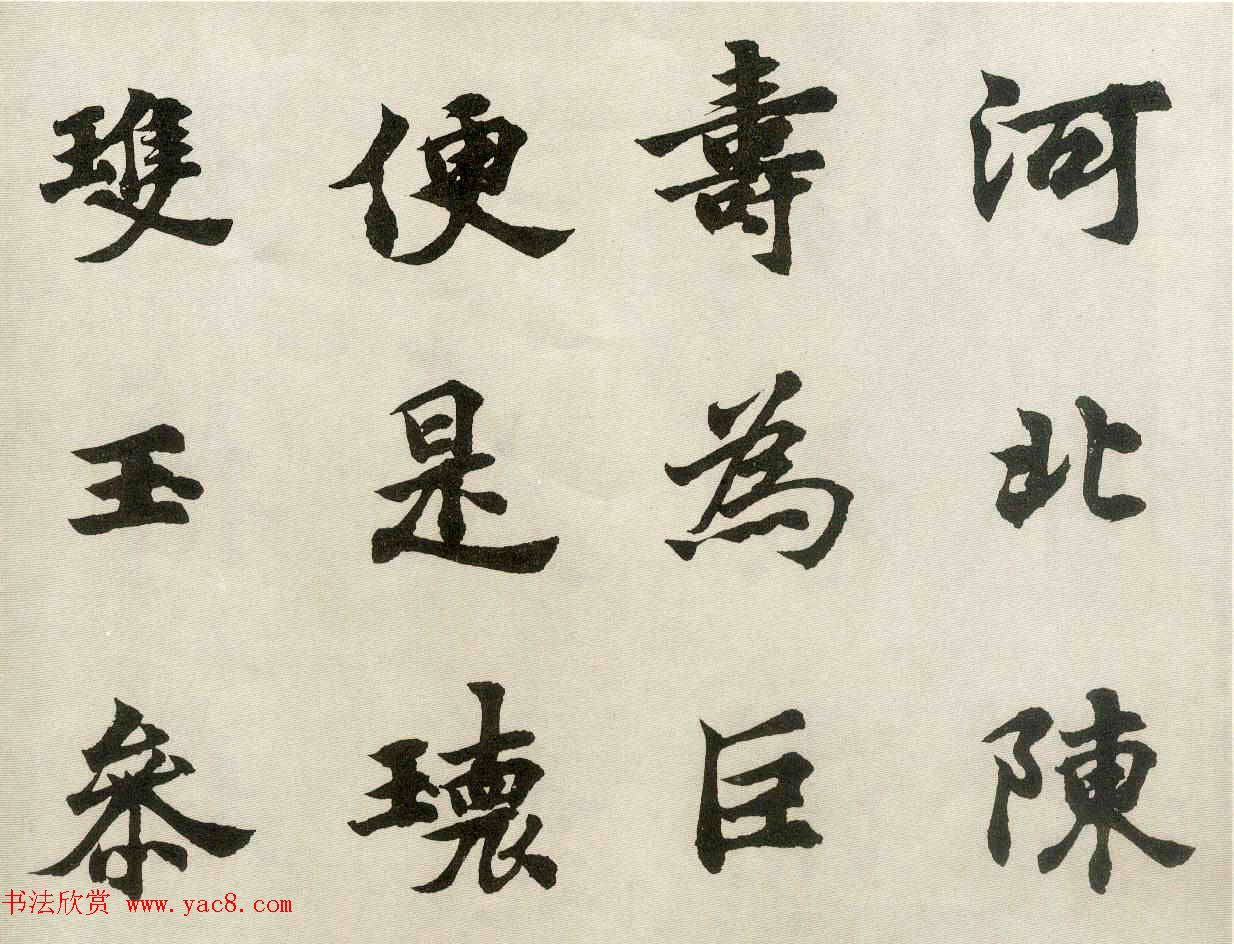 河北陳
壽為巨
便是瓌
玉參
书法欣赏 www.yac8.com